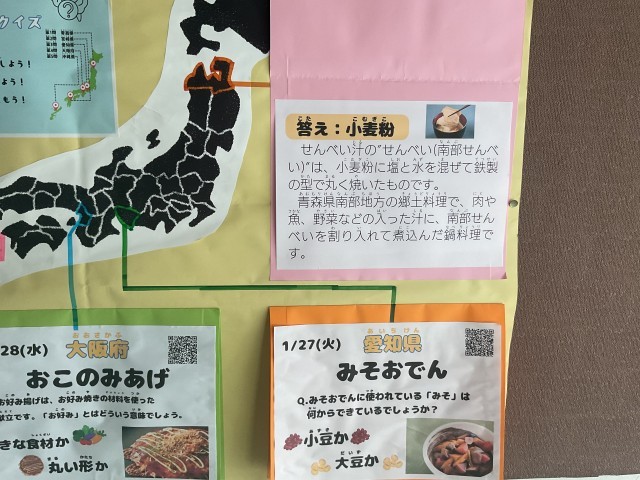 クイズ
しよう！
よう！
もう！
答え：小麦粉
せんべい汁の“せんべい(南部せんべ
い)”は、小麦粉に塩と水を混ぜて鉄製
の型で丸く焼いたものです。
青森県南部地方の郷土料理で、肉や
魚、野菜などの入った汁に、南部せん
べいを割り入れて煮込んだ鍋料理で
す。
28(水) 大阪府
おこのみあげ
お好み揚げは、お好み焼きの材料を使った
献立です。「お好み」とはどういう意味でしょう。
きな食材か
丸い形か
1/27(火) 愛知県
みそおでん
Q.みそおでんに使われている「みそ」は
何からできているでしょうか？
小豆か
大豆か